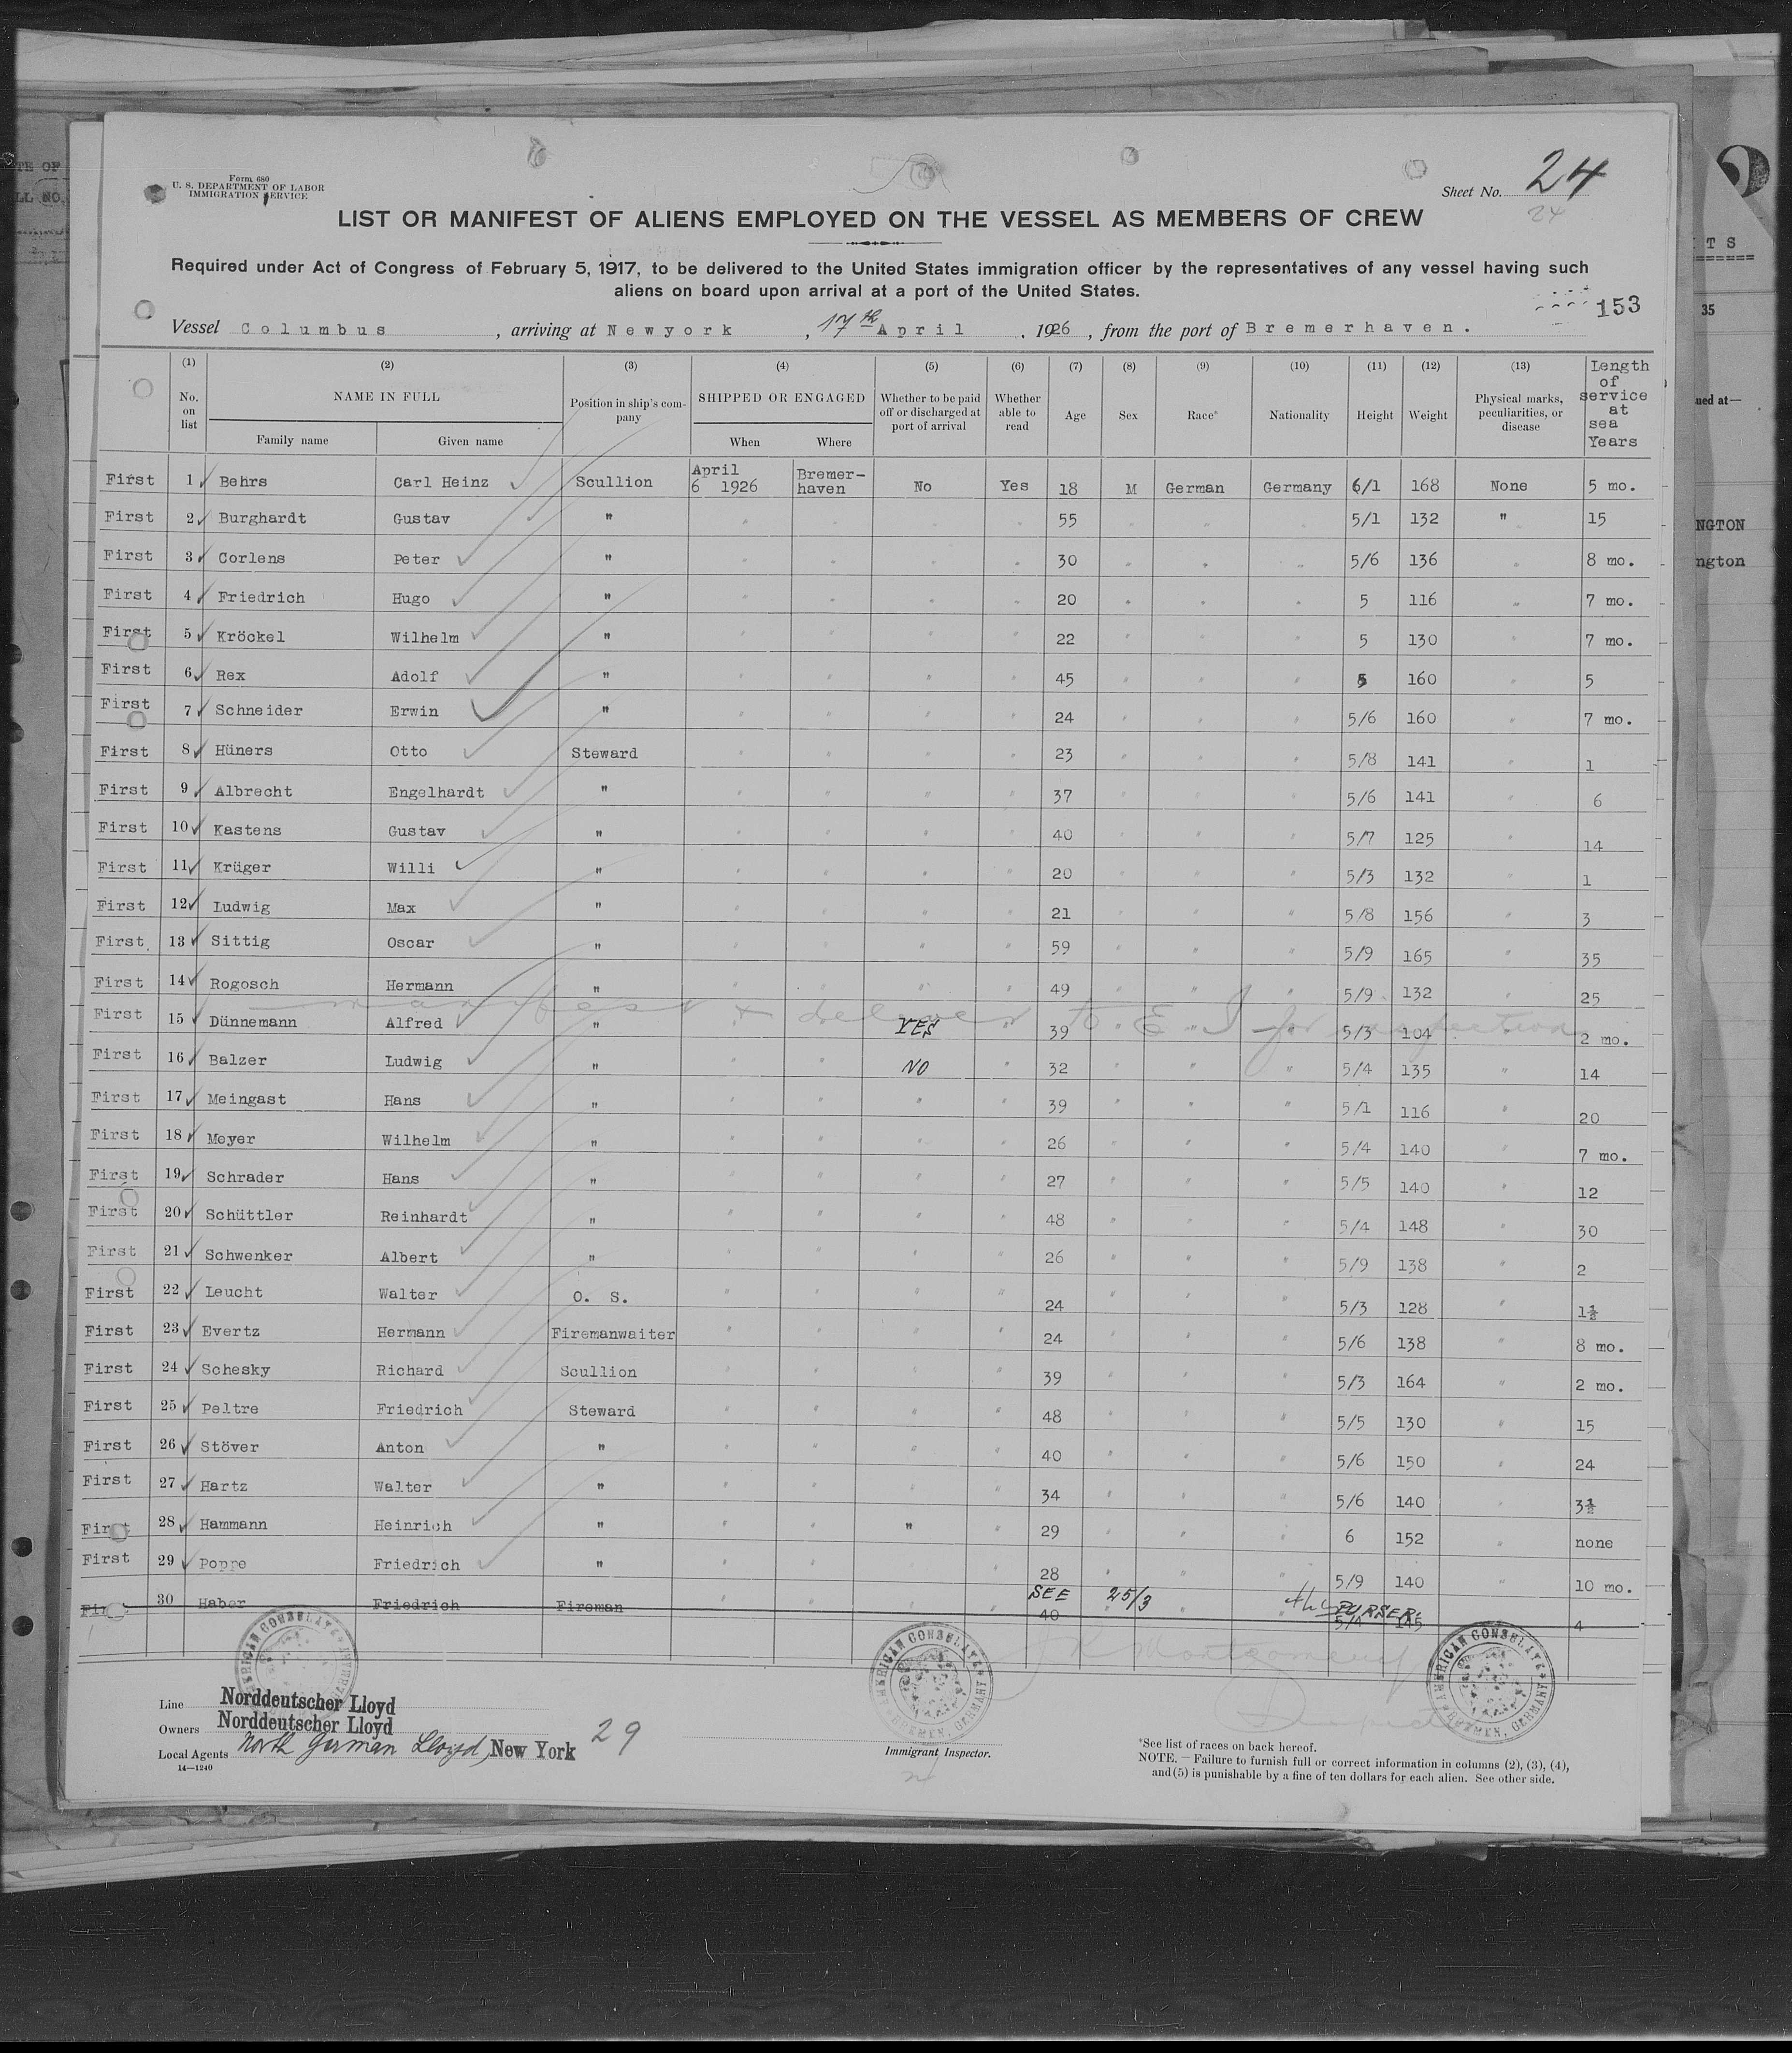 Form 680
U. S. DEPARTMENT OF LABOR
IMMIGRATION SERVICE
Sheet No. 24
24
LIST OR MANIFEST OF ALIENS EMPLOYED ON THE VESSEL AS MEMBERS OF CREW
Required under Act of Congress of February 5, 1917, to be delivered to the United States immigration officer by the representatives of any vessel having such
aliens on board upon arrival at a port of the United States.
153
Vessel Columbus, arriving at Newyork, 17th April, 1926, from the port of Bremerhaven.
(1) (2) (3) (4) (5) (6) (7) (8) (9) (10) (11) (12) (13)
No. on list NAME IN FULL Family name Given name Position in ship's company SHIPPED OR ENGAGED When Where Whether to be paid off or discharged at port of arrival Whether able to read Age Sex Race* Nationality Height Weight Physical marks, peculiarities, or disease Length of service at sea Years
First 1 Behrs Carl Heinz Scullion April 6 1926 Bremer-haven No Yes 18 M German Germany 6/1 168 None 5 mo.
First 2 Burghardt Gustav " " " " " 55 " " " 5/1 132 " 15
First 3 Corlens Peter " " " " " 30 " " " 5/6 136 " 8 mo.
First 4 Friedrich Hugo " " " " " 20 " " " 5 116 " 7 mo.
First 5 Kröckel Wilhelm " " " " " 22 " " " 5 130 " 7 mo.
First 6 Rex Adolf " " " " " 45 " " " 5 160 " 5
First 7 Schneider Erwin " " " " " 24 " " " 5/6 160 " 7 mo.
First 8 Hüners Otto Steward " " " " 23 " " " 5/8 141 " 1
First 9 Albrecht Engelhardt " " " " " 37 " " " 5/6 141 " 6
First 10 Kastens Gustav " " " " " 40 " " " 5/7 125 " 14
First 11 Krüger Willi " " " " " 20 " " " 5/3 132 " 1
First 12 Ludwig Max " " " " " 21 " " " 5/8 156 " 3
First 13 Sittig Oscar " " " " " 59 " " " 5/9 165 " 35
First 14 Rogosch Hermann " " " " " 49 " " " 5/9 132 " 25
manifest & deliver to E I for inspection
First 15 Dünnemann Alfred " " " YES " 39 " " " 5/3 104 " 2 mo.
First 16 Balzer Ludwig " " " NO " 32 " " " 5/4 135 " 14
First 17 Meingast Hans " " " " " 39 " " " 5/1 116 " 20
First 18 Meyer Wilhelm " " " " " 26 " " " 5/4 140 " 7 mo.
First 19 Schrader Hans " " " " " 27 " " " 5/5 140 " 12
First 20 Schüttler Reinhardt " " " " " 48 " " " 5/4 148 " 30
First 21 Schwenker Albert " " " " " 26 " " " 5/9 138 " 2
First 22 Leucht Walter O. S. " " " " 24 " " " 5/3 128 " 1½
First 23 Evertz Hermann Firemanwaiter " " " " 24 " " " 5/6 138 " 8 mo.
First 24 Schesky Richard Scullion " " " " 39 " " " 5/3 164 " 2 mo.
First 25 Peltre Friedrich Steward " " " " 48 " " " 5/5 130 " 15
First 26 Stöver Anton " " " " " 40 " " " 5/6 150 " 24
First 27 Hartz Walter " " " " " 34 " " " 5/6 140 " 3½
First 28 Hammann Heinrich " " " " " 29 " " " 6 152 " none
First 29 Poppe Friedrich " " " " " 28 " " " 5/9 140 " 10 mo.
SEE 25/3 PURSER.
First 30 Haber Friedrich Fireman " " " " 40 " " " 5/4 145 4
J K Montgomery
AMERICAN CONSULATE BREMEN, GERMANY
AMERICAN CONSULATE BREMEN, GERMANY
AMERICAN CONSULATE BREMEN, GERMANY
Line Norddeutscher Lloyd
Owners Norddeutscher Lloyd
Local Agents North German Lloyd, New York 29
14—1240
Immigrant Inspector.
*See list of races on back hereof.
NOTE.—Failure to furnish full or correct information in columns (2), (3), (4),
and (5) is punishable by a fine of ten dollars for each alien. See other side.
TE OF
LL NO.
TS
35
ued at—
NGTON
ngton